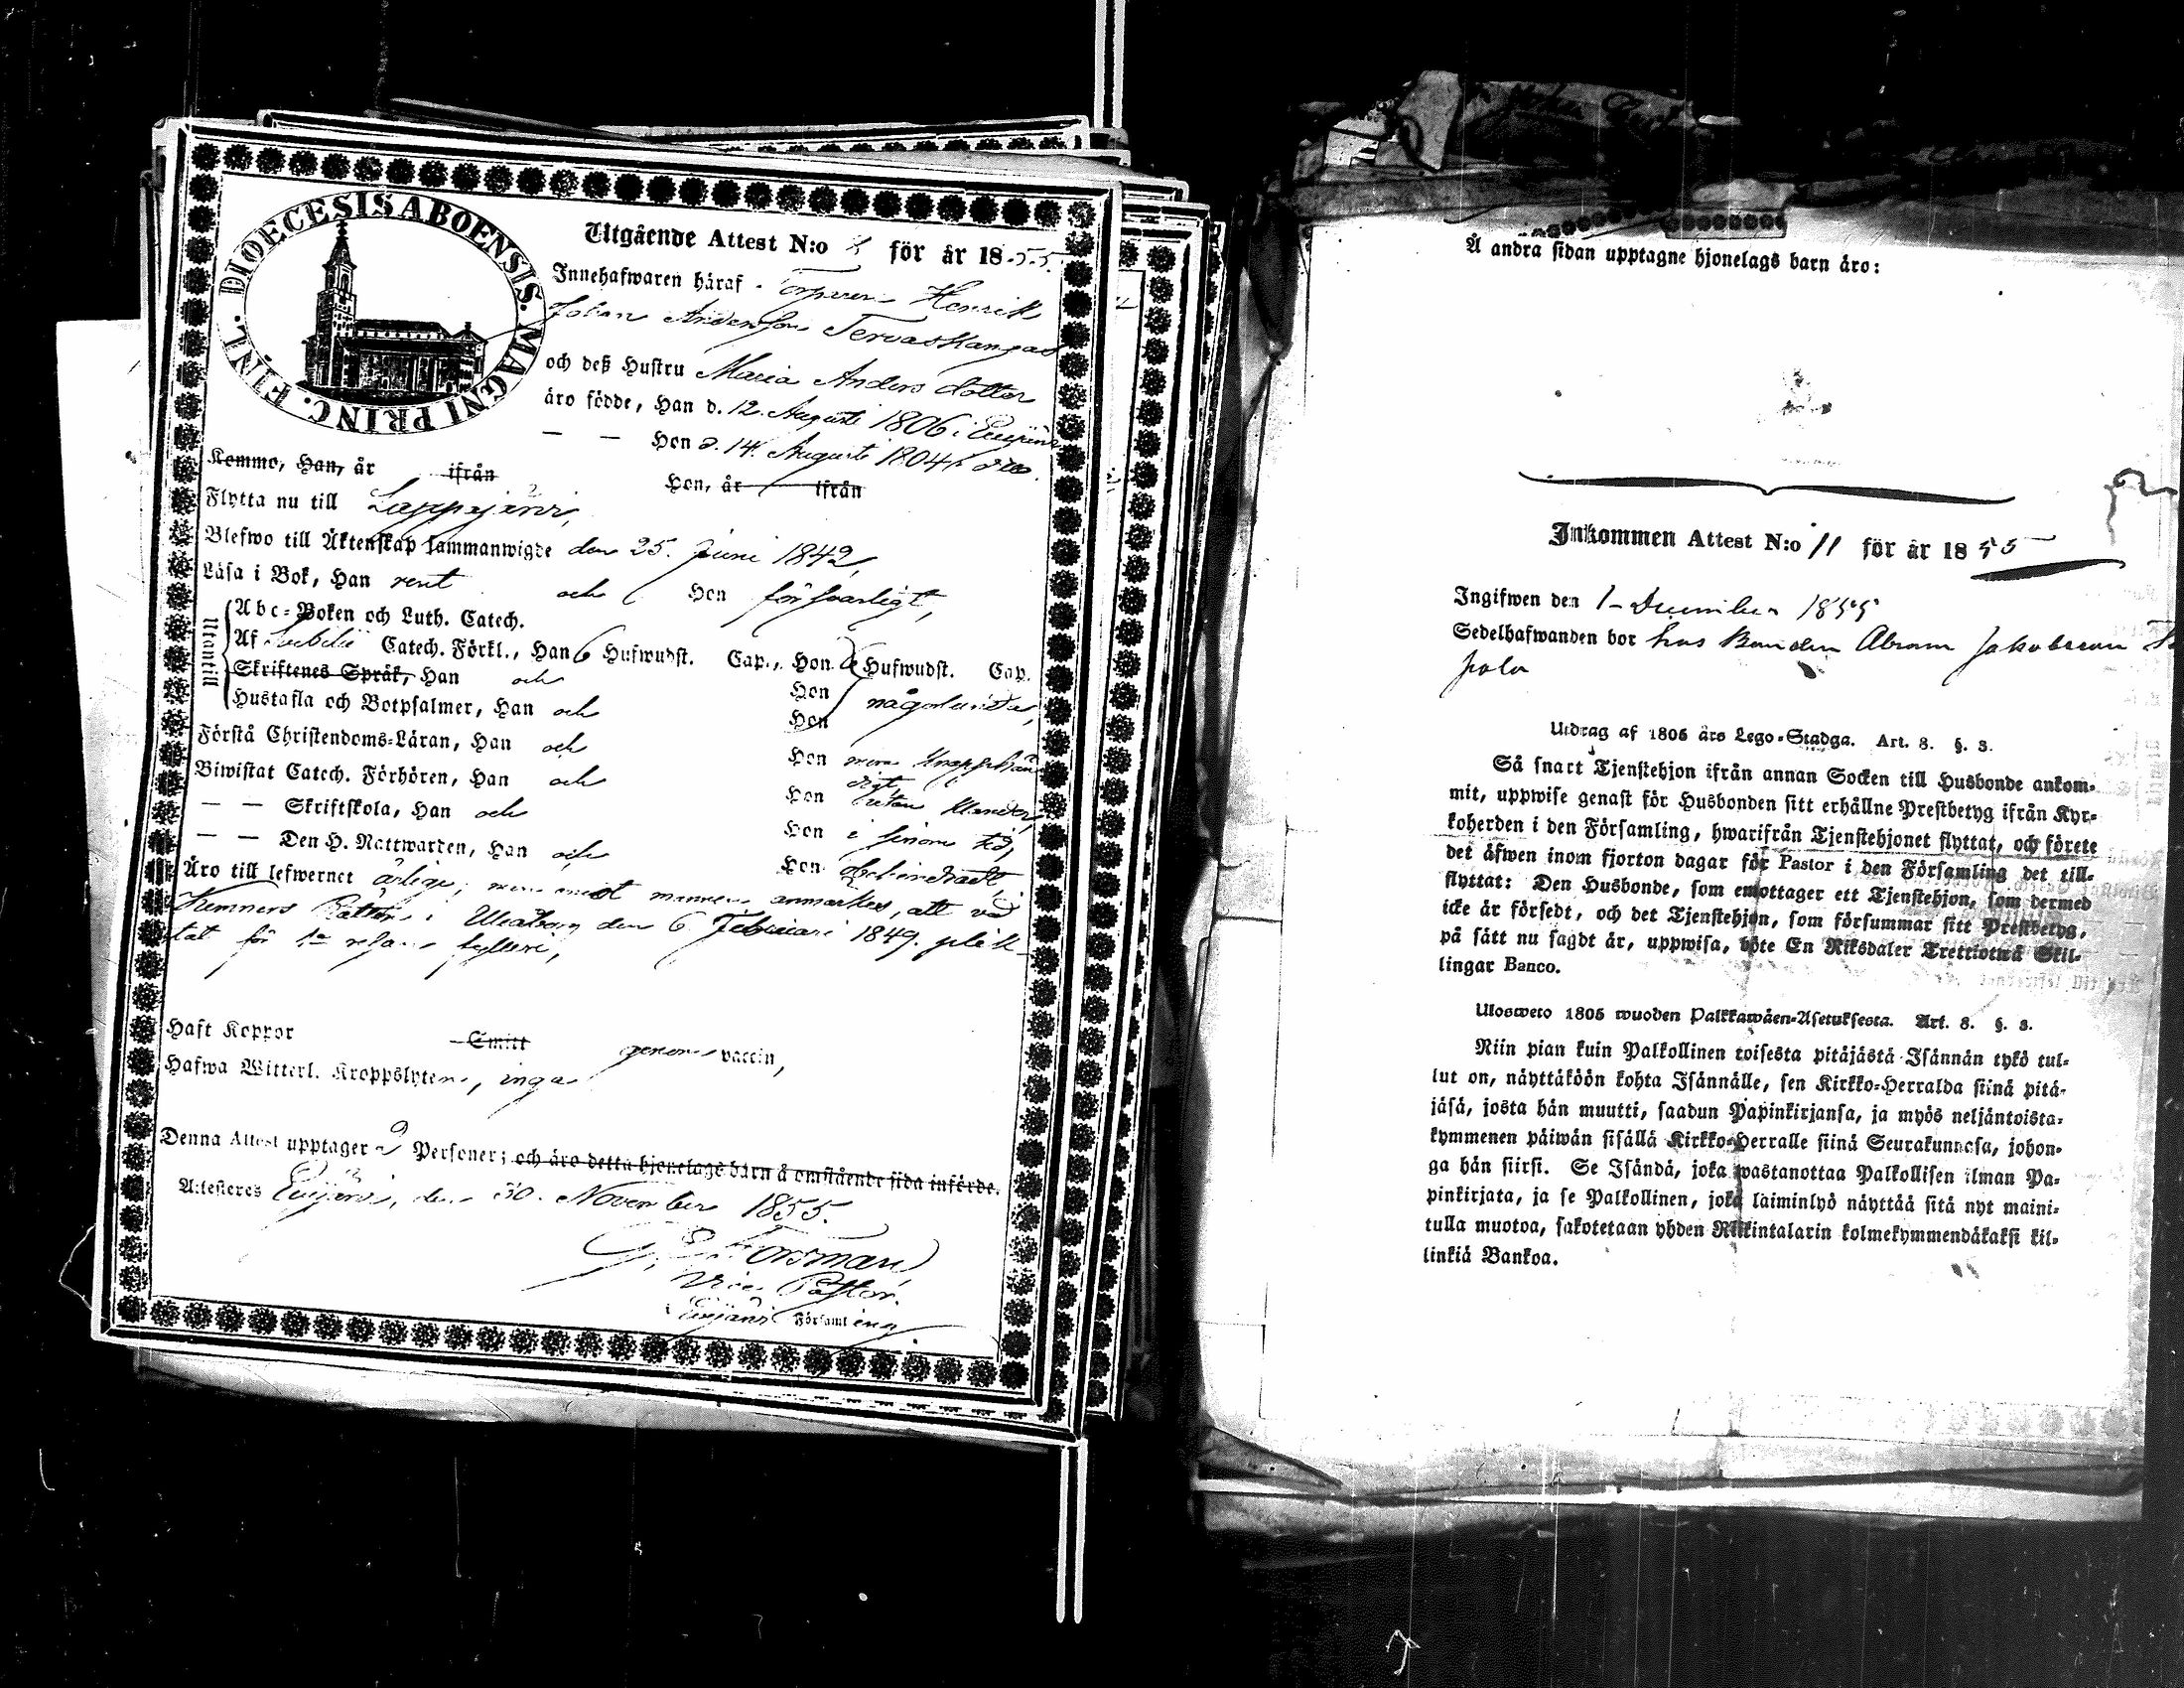 DIOECESIS ABOENSIS. MAGNI PRINC. FINL.
Utgående Attest N:o för år 1855.
Innehafwaren häraf Torparen Henrik
Johan Andersson Tervaskangas
och deß Hustru Maria Anders dotter
äro födde, Han d. 12. Augusti 1806 i Evijärvi
— — Hon d. 14. Augusti 1804 i
Kommo, Han, år ifrån Hon, år ifrån
Flytta nu till Lappajärvi,
Blefwo till Äktenskap sammanwigde den 25. Juni 1842,
Läsa i Bok, Han rent och Hon försvarligt,
Utantill
Abc-Boken och Luth. Catech.
Af Catech. Förkl., Han 6 Hufwudst. Cap., Hon 6 Hufwudst. Cap.
Skriftenes Språk, Han och Hon
Hustafla och Botpsalmer, Han och Hon någorlunda,
Förstå Christendoms-Läran, Han och Hon mera knapphän
digt,
Biwistat Catech. Förhören, Han och Hon utan klander,
— — Skriftskola, Han och Hon i sinom tid,
— — Den H. Nattwarden, Han och Hon obehindradt,
Äro till lefwernet ärlige; men emot mannen anmärkes, att vid
Kemners Rätten i Uleåborg den 6 Februari 1849. plik
tat för 1a resan fylleri,
Haft Koppor Smitt genom vaccin,
Hafwa Witterl. Kroppslyten, inga
Denna Attest upptager 2 Personer; och äro detta hjonelags barn å omstående sida införde.
Attesteras Evijärvi, den 30. November 1855.
Forsman
Vice Pastor.
Evijärvi Församling.
Å andra sidan upptagne hjonelags barn äro:
Inkommen Attest N:o 11 för år 1855
Ingifwen den 1 December 1855
Sedelhafwanden bor hos Bonden Abram Jakobsson
pola
Utdrag af 1805 års Lego-Stadga. Art. 8. §. 3.
Så snart Tjenstehjon ifrån annan Socken till Husbonde ankom-
mit, uppwise genast för Husbonden sitt erhållne Prestbetyg ifrån Kyr-
koherden i den Församling, hwarifrån Tjenstehjonet flyttat, och förete
det äfwen inom fjorton dagar för Pastor i den Församling det till-
flyttat: Den Husbonde, som emottager ett Tjenstehjon, som dermed
icke är försedt, och det Tjenstehjon, som försummar sitt Prestbetyg,
på sätt nu sagdt är, uppwisa, böte En Riksdaler Trettiotwå Skil-
lingar Banco.
Ulosweto 1805 wuoden Palkkawäen-Asetuksesta. Art. 8. §. 3.
Niin pian kuin Palkollinen toisesta pitäjästä Isännän tykö tul-
lut on, näyttäköön kohta Isännälle, sen Kirkko-Herralda siinä pitä-
jäsä, josta hän muutti, saadun Papinkirjansa, ja myös neljäntoista-
kymmenen päiwän sisällä Kirkko-Herralle siinä Seurakunnasa, johon-
ga hän siirsi. Se Isändä, joka wastanottaa Palkollisen ilman Pa-
pinkirjata, ja se Palkollinen, joka laiminlyö näyttää sitä nyt maini-
tulla muotoa, sakotetaan yhden Riikintalarin kolmekymmendäkaksi kil-
linkiä Bankoa.